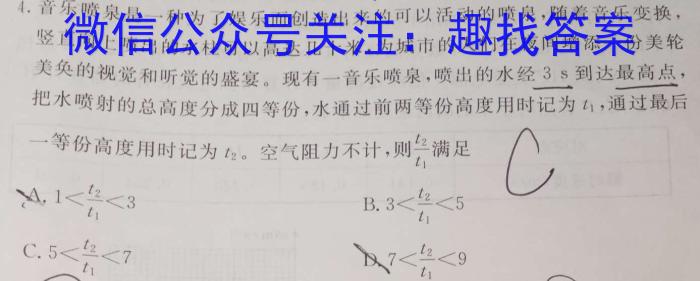 4. 音乐喷泉是一种为了娱乐而创造出来的可以活动的喷泉,随着音乐变换,
微信公众号关注：趣找答案
奂的视觉和听觉的盛宴。现有一音乐喷泉,喷出的水经 3 s 到达最高点,
把水喷射的总高度分成四等份,水通过前两等份高度用时记为 t₁,通过最后
一等份高度用时记为 t₂。空气阻力不计,则 t₂/t₁ 满足
A. 1<t₂/t₁<3
B. 3<t₂/t₁<5
C. 5<t₂/t₁<7
D. 7<t₂/t₁<9